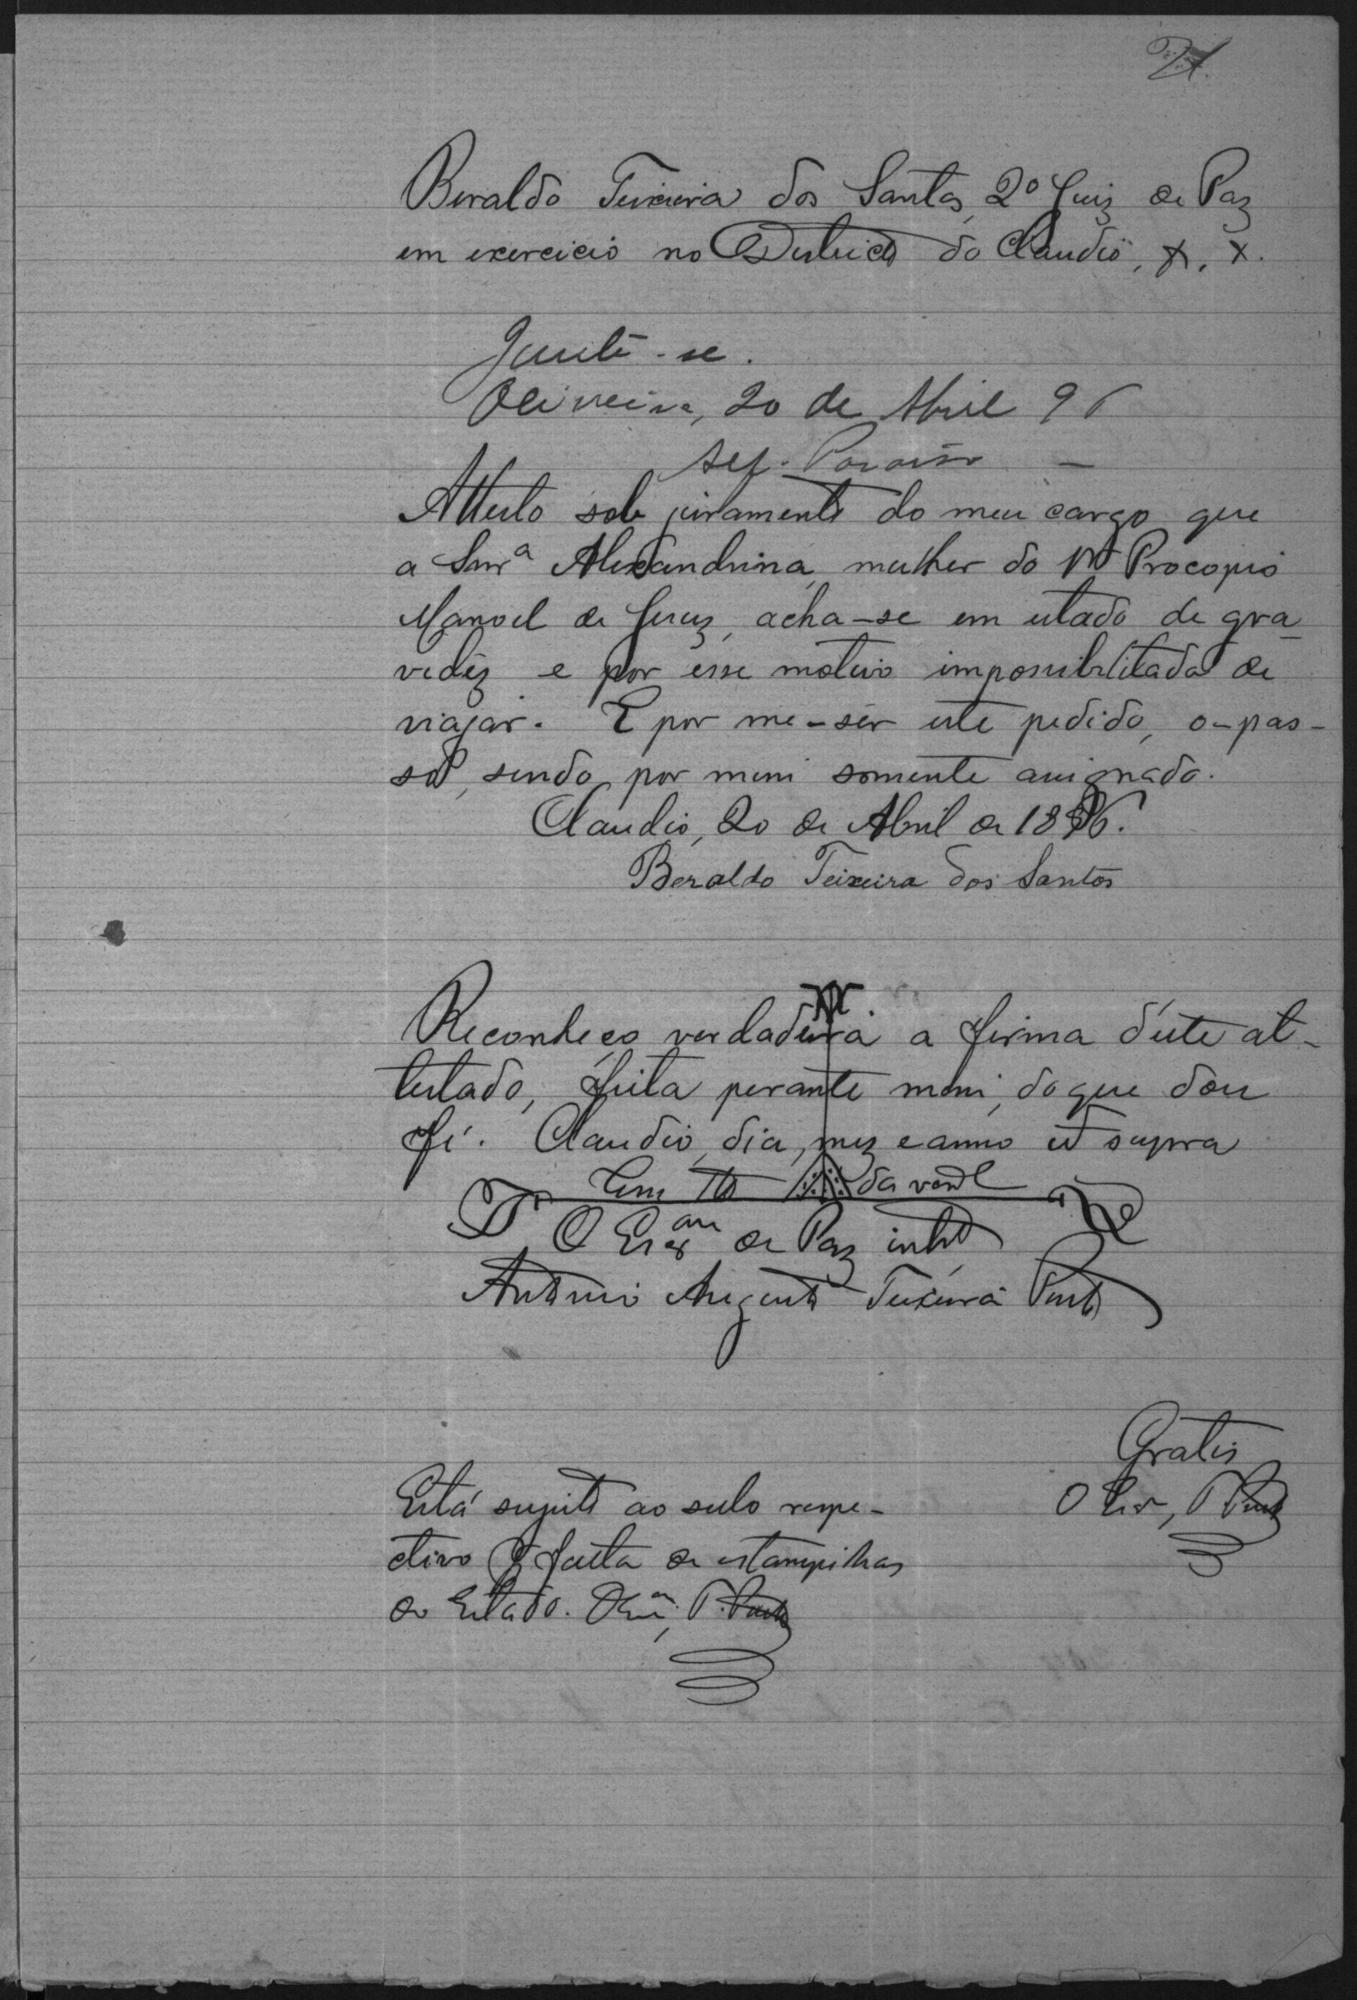 21.
Beraldo Teixeira dos Santos, 2º Juiz de Paz
em exercicio no Districto do Claudio, &, &.
Junte-se.
Oliveira, 20 de Abril 96
Attesto sob juramento do meu cargo que
a Snrª Alexandrina, mulher do Procopio
Manoel de Jesus, acha-se em estado de gra-
vidêz e por esse motivo impossibilitada de
viajar. E por me-sêr este pedido, o-pas-
so, sendo por mim somente assignado.
Claudio, 20 de Abril de 1896.
Beraldo Teixeira dos Santos
Reconheço verdadeira a firma d'este at-
testado, feita perante mim, do que dou
fé. Claudio, dia, mez e anno ut supra
Em da verde
O Escam de Paz intº
Antonio Teixeira Porto
Gratis
O Esc, T. Porto
Está sugeito ao sello respe-
ctivo falta de estampilhas
do Estado. O Esc, T. Porto